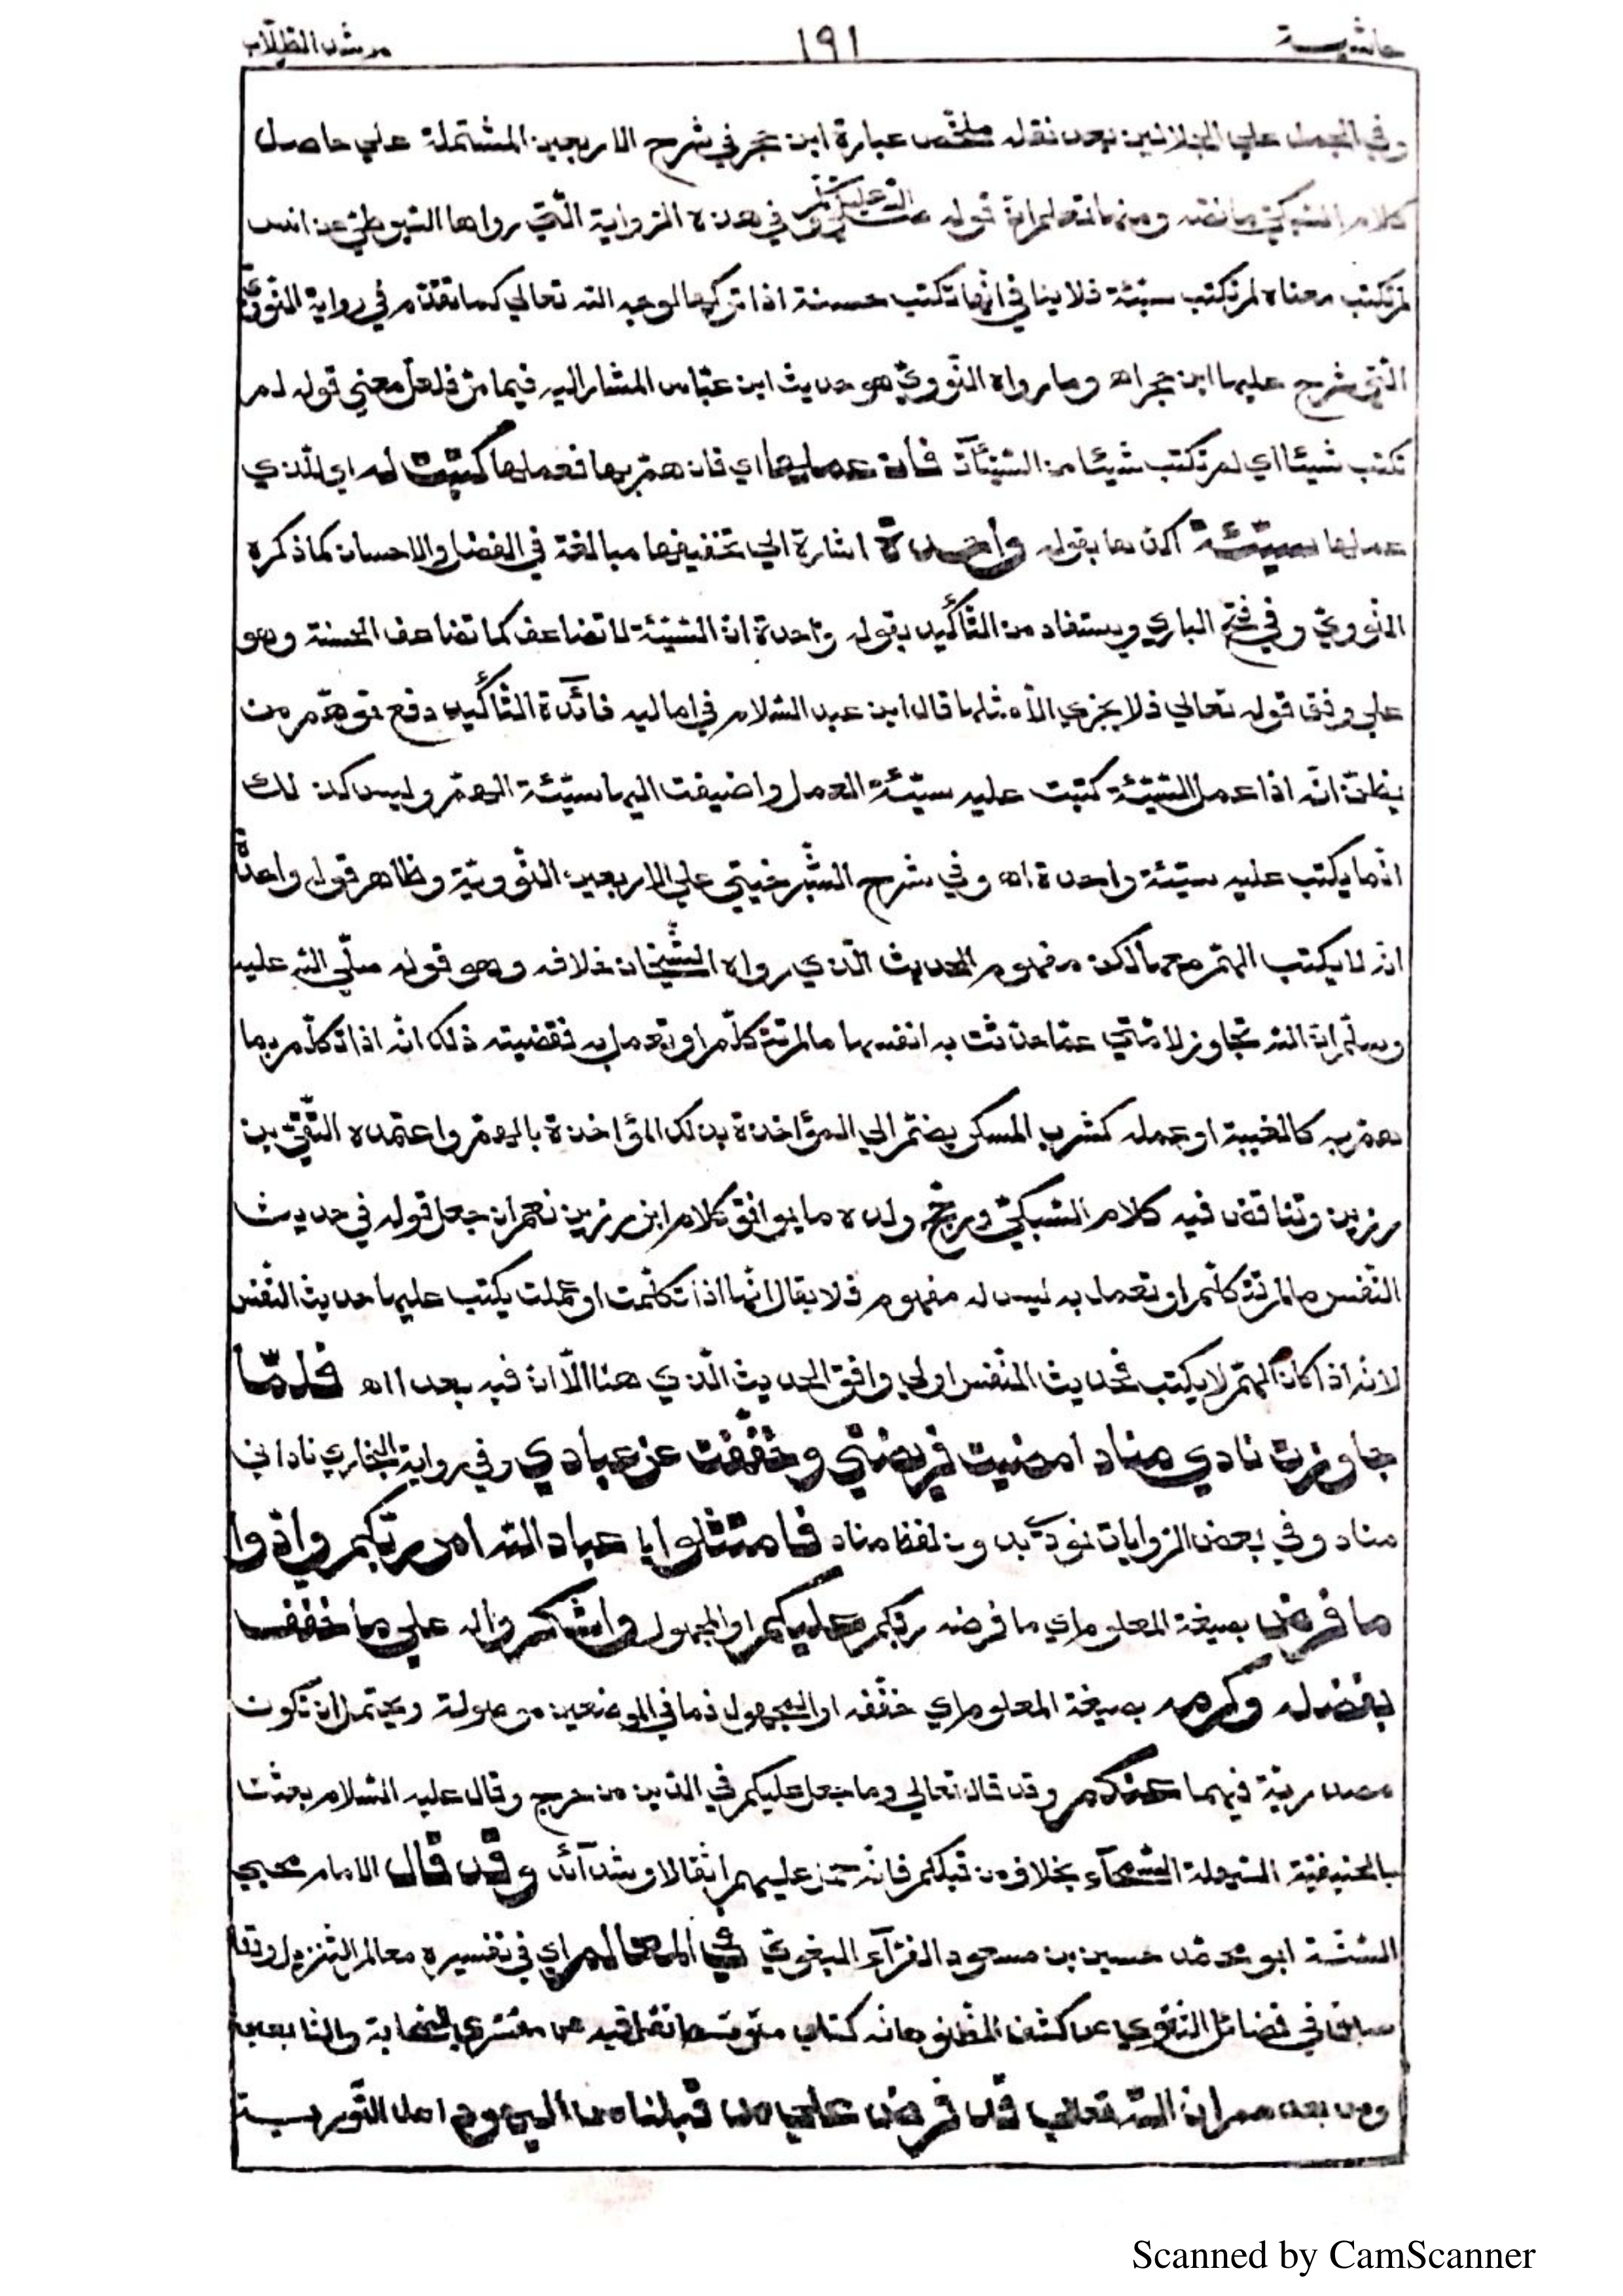 حاشية
١٩١
مرشد الطلّاب
وفي الجمل علي الجلالين بعد نقله ملخّص عبارة ابن حجر في شرح الاربعين المشتملة علي حاصل
كلام السّبكيّ ما نصّه ومنها تعلم انّ قوله صلّي اللّه عليه وسلّم في هذه الرّواية الّتي رواها السّيوطيّ عن انس
لم تكتب معناه لم تكتب سيّئة فلا ينافي انّها تكتب حسنة اذا تركها لوجه اللّه تعالي كما تقدّم في رواية النّوويّ
الّتي شرح عليها ابن حجر اه وما رواه النّوويّ هو حديث ابن عبّاس المشار اليه فيما مرّ فلعلّ معني قوله لم
تكتب شيئا اي لم تكتب شيئا من السّيّئآت فان عملها اي فان همّ بها فعملها كتبت له اي للّذي
عملها سيّئة اكّدها بقوله واحدة اشارة الي تخفيفها مبالغة في الفضل والاحسان كما ذكره
النّوويّ وفي فتح الباري ويستفاد من التّأكيد بقوله واحدة انّ السّيّئة لا تضاعف كما تضاعف الحسنة وهو
علي وفق قوله تعالي فلا يجزي الّا مثلها قال ابن عبد السّلام في اماليه فائدة التّأكيد دفع توهّم من
يظنّ انّه اذا عمل السّيّئة كتبت عليه سيّئة العمل واضيفت اليها سيّئة الهمّ وليس كذلك
انّما يكتب عليه سيّئة واحدة اه وفي شرح الشّبرخيتي علي الاربعين النّوويّة وظاهر قوله واحدة
انّه لا يكتب الهمّ معها لكن مفهوم الحديث الّذي رواه الشّيخان خلافه وهو قوله صلّي اللّه عليه
وسلّم انّ اللّه تجاوز لامّتي عمّا حدّثت به انفسها ما لم تتكلّم او تعمل به فقضيته ذلك انّه اذا تكلّم بما
همّ به كالغيبة او عمله كشرب المسكر يضمّ الي المؤاخذة بذلك المؤاخذة بالهمّ واعتمده التّقيّ بن
رزين وتناقض فيه كلام السّبكيّ ورجّح ولده ما يوافق كلام ابن رزين نعم ان جعل قوله في حديث
النّفس ما لم تتكلّم او تعمل به ليس له مفهوم فلا يقال انّها اذا تكلّمت او عملت يكتب عليها حديث النّفس
لانّه اذا كان الهمّ لا يكتب فحديث النّفس اولي وافق الحديث الّذي هنا الّا ان فيه بعدا اه فلمّا
جاوزت نادي مناد امضيت فريضتي وخفّفت عن عبادي وفي رواية البخاري ناداني
مناد وفي بعض الرّوايات نوديت بدون لفظ مناد فامتثلوا يا عباد اللّه امر ربّكم وادّوا
ما فرض بصيغة المعلوم اي ما فرضه ربّكم عليكم او المجهول واشكروا له علي ما خفّف
بفضله وكرمه بصيغة المعلوم اي خفّفه او المجهول فما في الموضعين موصولة ويحتمل ان تكون
مصدريّة فيهما عنكم وقد قال تعالي وما جعل عليكم في الدّين من حرج وقال عليه السّلام بعثت
بالحنيفيّة السّهلة السّمحآء بخلاف من قبلكم فانّه حمل عليهم اثقالا وشدآئد وقد قال الامام محيي
السّنّة ابو محمّد حسين بن مسعود الفرّآء البغويّ في المعالم اي في تفسيره معالم التّنزيل وتقا
سابقا في فضائل التّقوي عن كشف الظّنون انه كتاب متوسّط نقل فيه عن مفسّري الصّحابة والتّابعين
ومن بعدهم ان اللّه تعالي قد فرض علي من قبلنا من اليهود اهل التّورية
Scanned by CamScanner